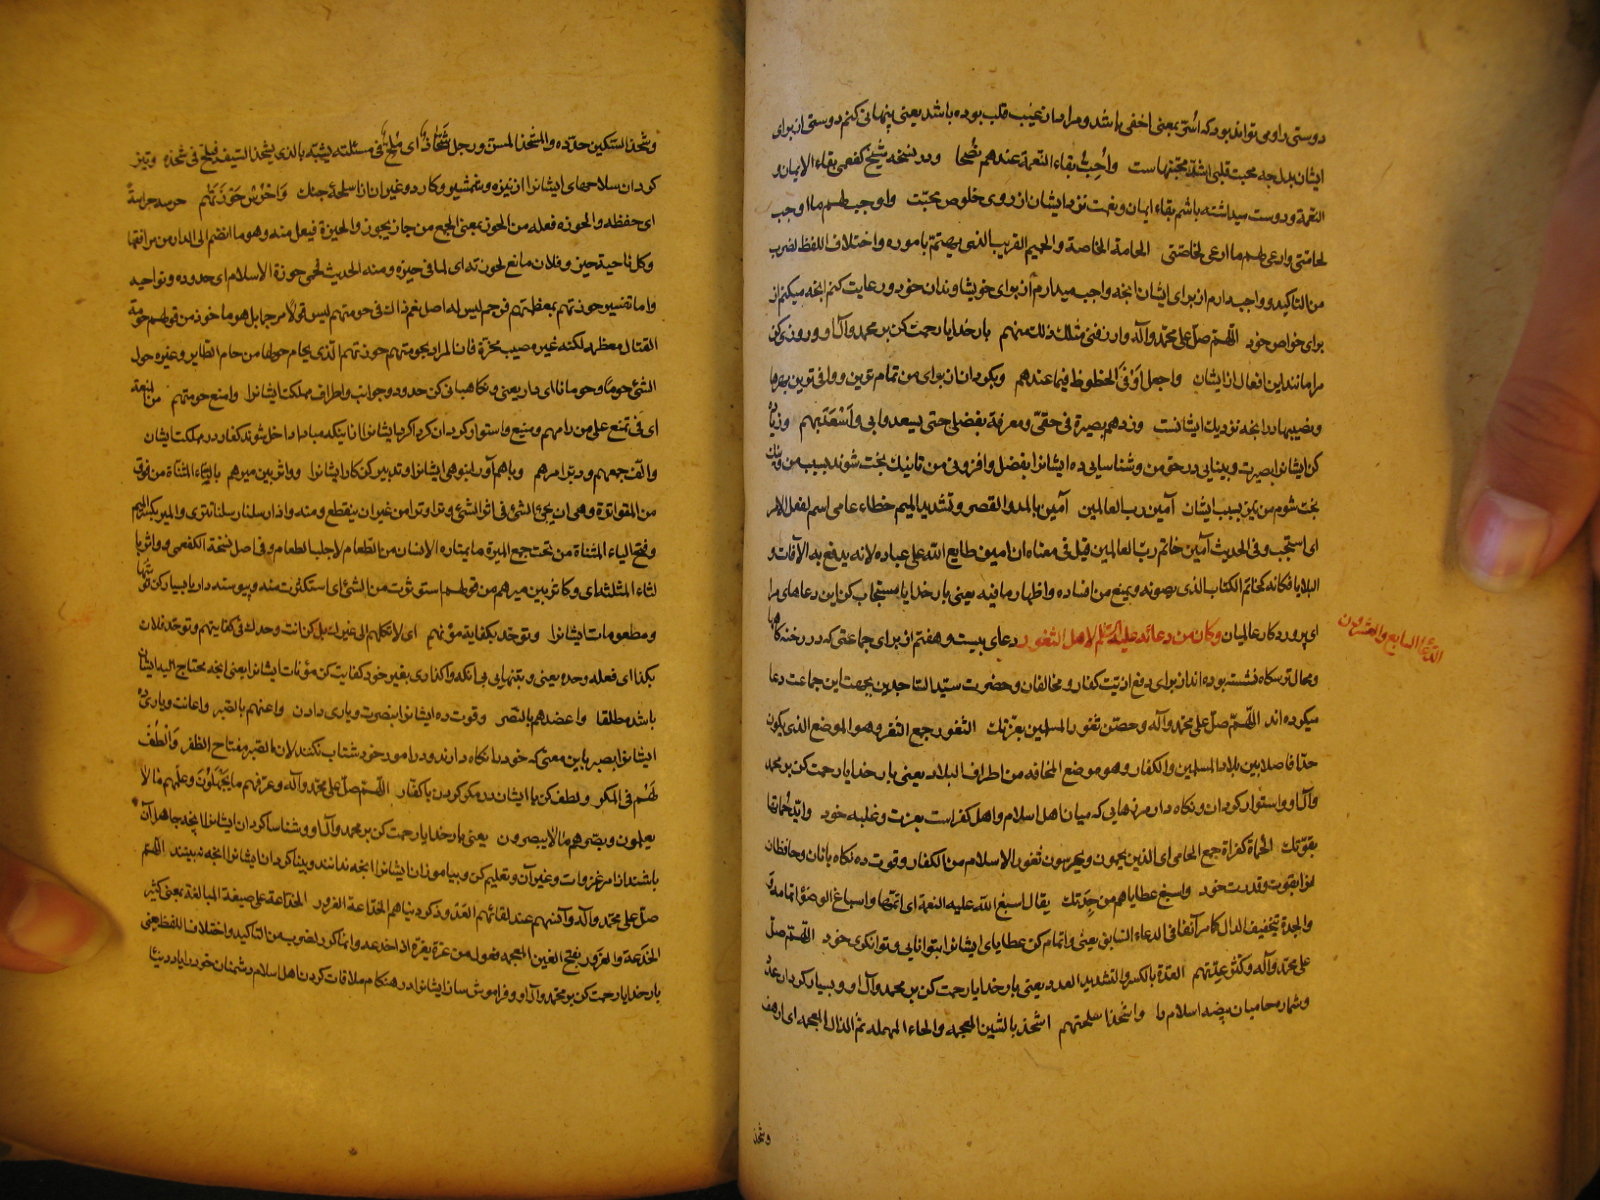 دوستی داومی تواند بود که اسّر بمعنی اخفی باشد و مراد از غیب قلب بوده باشد یعنی پنهانی کنم دوستی از برای
ایشان بدرجه محبت قلبی اشدّ محبتهاست واُحِبُّ بقاء النّعمة عندهم نُصحا و در نسخه شیخ کفعمی بقاء الایمان و
النعمة و دوست میداشته باشم بقاء ایمان و نعمت نزد ایشان از روی خلوص محبّت و اوجب لهم ما اوجب
لحامّتی وارعی لهم ما ارعی لخاصّتی الحامة الخاصة والحمیم القریب الذی یهتمّ باموره و اختلاف اللفظ لضرب
من التاکید و واجب دارم از برای ایشان انچه واجب میدارم از برای خویشاوندان خود و رعایت کنم انچه میکنم از
برای خواص خود اللّهمّ صلّ علی محمّد وآله وارزقنی مثل ذلک منهم بار خدایا رحمت کن بر محمد و آل او و روزی کن
مرا مانند این افعال از ایشان واجعل لی اَوفَی الحظوظ فیما عندهم وبکردان از برای من تمام ترین و وافی ترین بهرها
و نصیبها در انچه نزدیک ایشانست وزدهم بصیرة فی حقّی ومعرفة بفضلی حتی یسعدوا بی وأسْعَدَ بهم و زیاده
کن ایشانرا بصیرت و بینایی در حق من و شناسایی ده ایشانرا بفضل و افزونی من تا نیک بخت شوند بسبب من و نیک
بخت شوم من نیز بسبب ایشان آمین رب العالمین آمین بالمد والقصر وتشدید المیم خطاء عامی اسم لفعل الامر
ای استجب وفی الحدیث آمین خاتم ربّ العالمین قیل فی معناه ان امین طابع اللّه علی عباده لانه یدفع به الآفات و
البلایا فکانه کخاتم الکتاب الذی یصونه ویمنع من افساده واظهار ما فیه یعنی بار خدایا مستجاب کن این دعاهای مرا
ای پروردکار عالمیان وکان من دعائه علیه السّلم لاهل الثغور دعای بیست و هفتم از برای جماعتی که در رخنه کاهها
الدّعاء السابع والعشرون
و محال ترسکاه نشسته بوده اند از برای دفع اذیّت کفار و مخالفان و حضرت سیّد الساجدین بجهت این جماعت دعا
میکرده اند اللّهمّ صلّ علی محمّد وآله وحصّن ثغور المسلمین بعزّتک الثغور جمع الثغر وهو الموضع الذی یکون
حدّا فاصلا بین بلاد المسلمین والکفار وهو موضع المخافه من اطراف البلاد یعنی بار خدایا رحمت کن بر محمد
و آل او و استوار کردان و نکاه دار مرزهایی که میان اهل اسلام و اهل کفر است بعزت و غلبه خود وایّد حُماتها
بقوّتک الحُماة کغزاة جمع الحامی ای الذین یحمون ویحرسون ثغور الاسلام من الکفار و قوت ده نکاه بانان و حافظان
انرا بقوت و قدرت خود واسبغ عطایاهم من جِدَتک یقال اسبغ اللّه علیه النعمة ای اتمّها واسباغ الوضوء اتمامه
والجدة بتخفیف الدال کما مر آنفا فی الدعاء السابق یعنی و اتمام کن عطایای ایشانرا بتوانایی و توانکری خود اللّهمّ صلّ
علی محمّد وآله وکثّر عدّتهم العدّة بالکسر والتشدید العدد یعنی بار خدایا رحمت کن بر محمد و آل او و بسیار کردان عدد
و شمار حامیان بیضه اسلام را واشحذ اسلحتهم اشحذ بالشین المعجمه والحاء المهمله ثمّ الذال المعجمه ای ارهف
وشحذ
وشحذ السّکین حدّده والمِشحَذ المسن ورجل شَحّاذ ای مُلِحّ فی مسئلته یشبّه بالذی یشحذ السّیف فیلحّ فی شحذه و تیز
کردان سلاحهای ایشانرا از نیزه و شمشیر و کارد و غیر ان از اسلحهٔ جنک وَاحْرُسْ حَوْزَتَهُم حرسه حراسةً
ای حفظه والحوزه فعله من الحوز بمعنی الجمع من حاز یحوز والحیزة فیعل منه وهو ما انضم الی الدار من مرافقها
وکل ناحیة حیز وفلان مانع لحوزته ای لما فی حیزه ومنه الحدیث فحمی حوزة الاسلام ای حدوده ونواحیه
واما تفسیر حوزتهم بمعظمهم فوهم لیس له اصل نعم ذاک فی حومتهم لیس قولا مرجا بل هو ماخوذ من قولهم حومة
القتال معظمه لکنه غیر مصیب محزّه فان المراد بحومتهم حوزتهم الّذی یحام حولها من حام الطایر وغیره حول
الشئ حوماً وحومانا ای دار یعنی و نکاهبانی کن حدود و جوانب و اطراف مملکت ایشانرا وامنع حومتهم من المنعة
ای فی تمنع علی من رامهم و منیع و استوار کردان کرداکرد ایشانرا از اینکه مبادا داخل شوند کفار در مملکت ایشان
والّف جمعهم ودبّر امرهم و باهم آور انبوهی ایشانرا و تدبیر کن کار ایشانرا وواتر بین میرهم بالتاء المثنّاة من فوق
من المتواترة وهی ان یجئ الشئ فی اثر الشئ وتراً وترا من غیر ان ینقطع ومنه وارسلنا رسلنا تتری والمیر بکسر المیم
وفتح الیاء المثناة من تحت جمع المیرة ما یمتاره الانسان من الطعام لاجلب الطعام وفی اصل نسخة الکفعمی وواثر با
لثاء المثلثه ای وکاثر بین میرهم من قولهم استوثرت من الشئ ای استکثرت منه و پیوسته دار یا بسیار کن قوتها
و مطعومات ایشانرا وتوحّد بکفایة مؤنهم ای لا تکلهم الی غیرک بل کن انت وحدک فی کفایتهم وتوحّد فلان
بکذا ای فعله وحده یعنی و بتنهایی بی انکه واکذاری بغیر خود کفایت کن مؤنات ایشانرا یعنی انچه محتاج الیه ایشان
باشد مطلقا واعضدهم بالنّصر و قوت ده ایشانرا بنصرت و یاری دادن واعنهم بالصّبر و اعانت و یاری ده
ایشانرا بصبر باین معنی که خود را نکاه دارند و در امور خود شتاب نکنند لان الصّبر مفتاح الظفر وَالْطُفْ
لَهُم فی المکر و لطف کن با ایشان در مکر کردن با کفّار اللّهمّ صلّ علی محمّد وآله وعرّفهم ما یَجْهَلُونَ وعلّمهم ما لا
یعلمون وبصّرهم ما لا یبصرون یعنی بار خدایا رحمت کن بر محمد و آل او و شناسا کردان ایشانرا انچه جاهل آن
باشند از امر غزوات و غیر آن و تعلیم کن و بیاموز ان ایشانرا انچه ندانند و بینا کردان ایشانرا انچه نبینند اللّهمّ
صلّ علی محمّد وآله وانسهم عند لقائهم العدّو ذکر دنیاهم الخدّاعة الغرور الخدّاعة علی صیغة المبالغة بمعنی کثیر
الخدعة والغرور بفتح الغین المعجمه فعول من غرّه یغرّه اذا خدعه وانما کرر لضرب من التاکید واختلاف اللفظ یعنی
بار خدایا رحمت کن بر محمد و آل او و فراموش ساز ایشانرا در هنکام ملاقات کردن اهل اسلام دشمنان خود را یاد دنیا